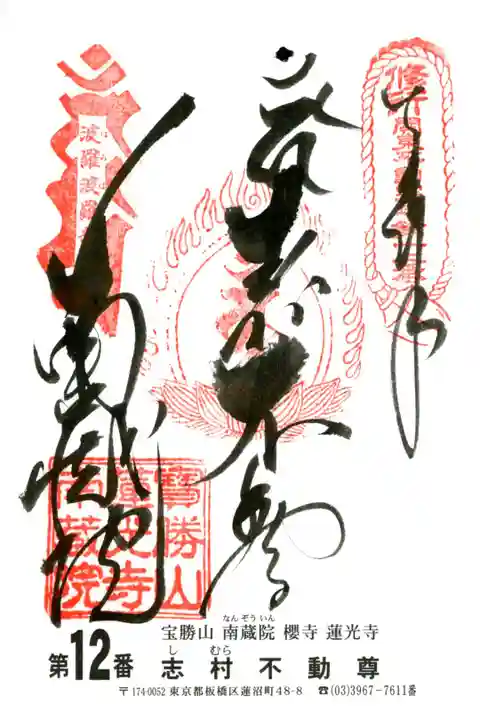 奉拝
志村不動尊
南蔵院
波羅波羅
寳勝山
蓮光寺
南蔵院
なんぞういん
宝勝山 南蔵院 櫻寺 蓮光寺
し むら
第12番 志村不動尊
〒174-0052 東京都板橋区蓮沼町48-8 ☎(03)3967-7611番